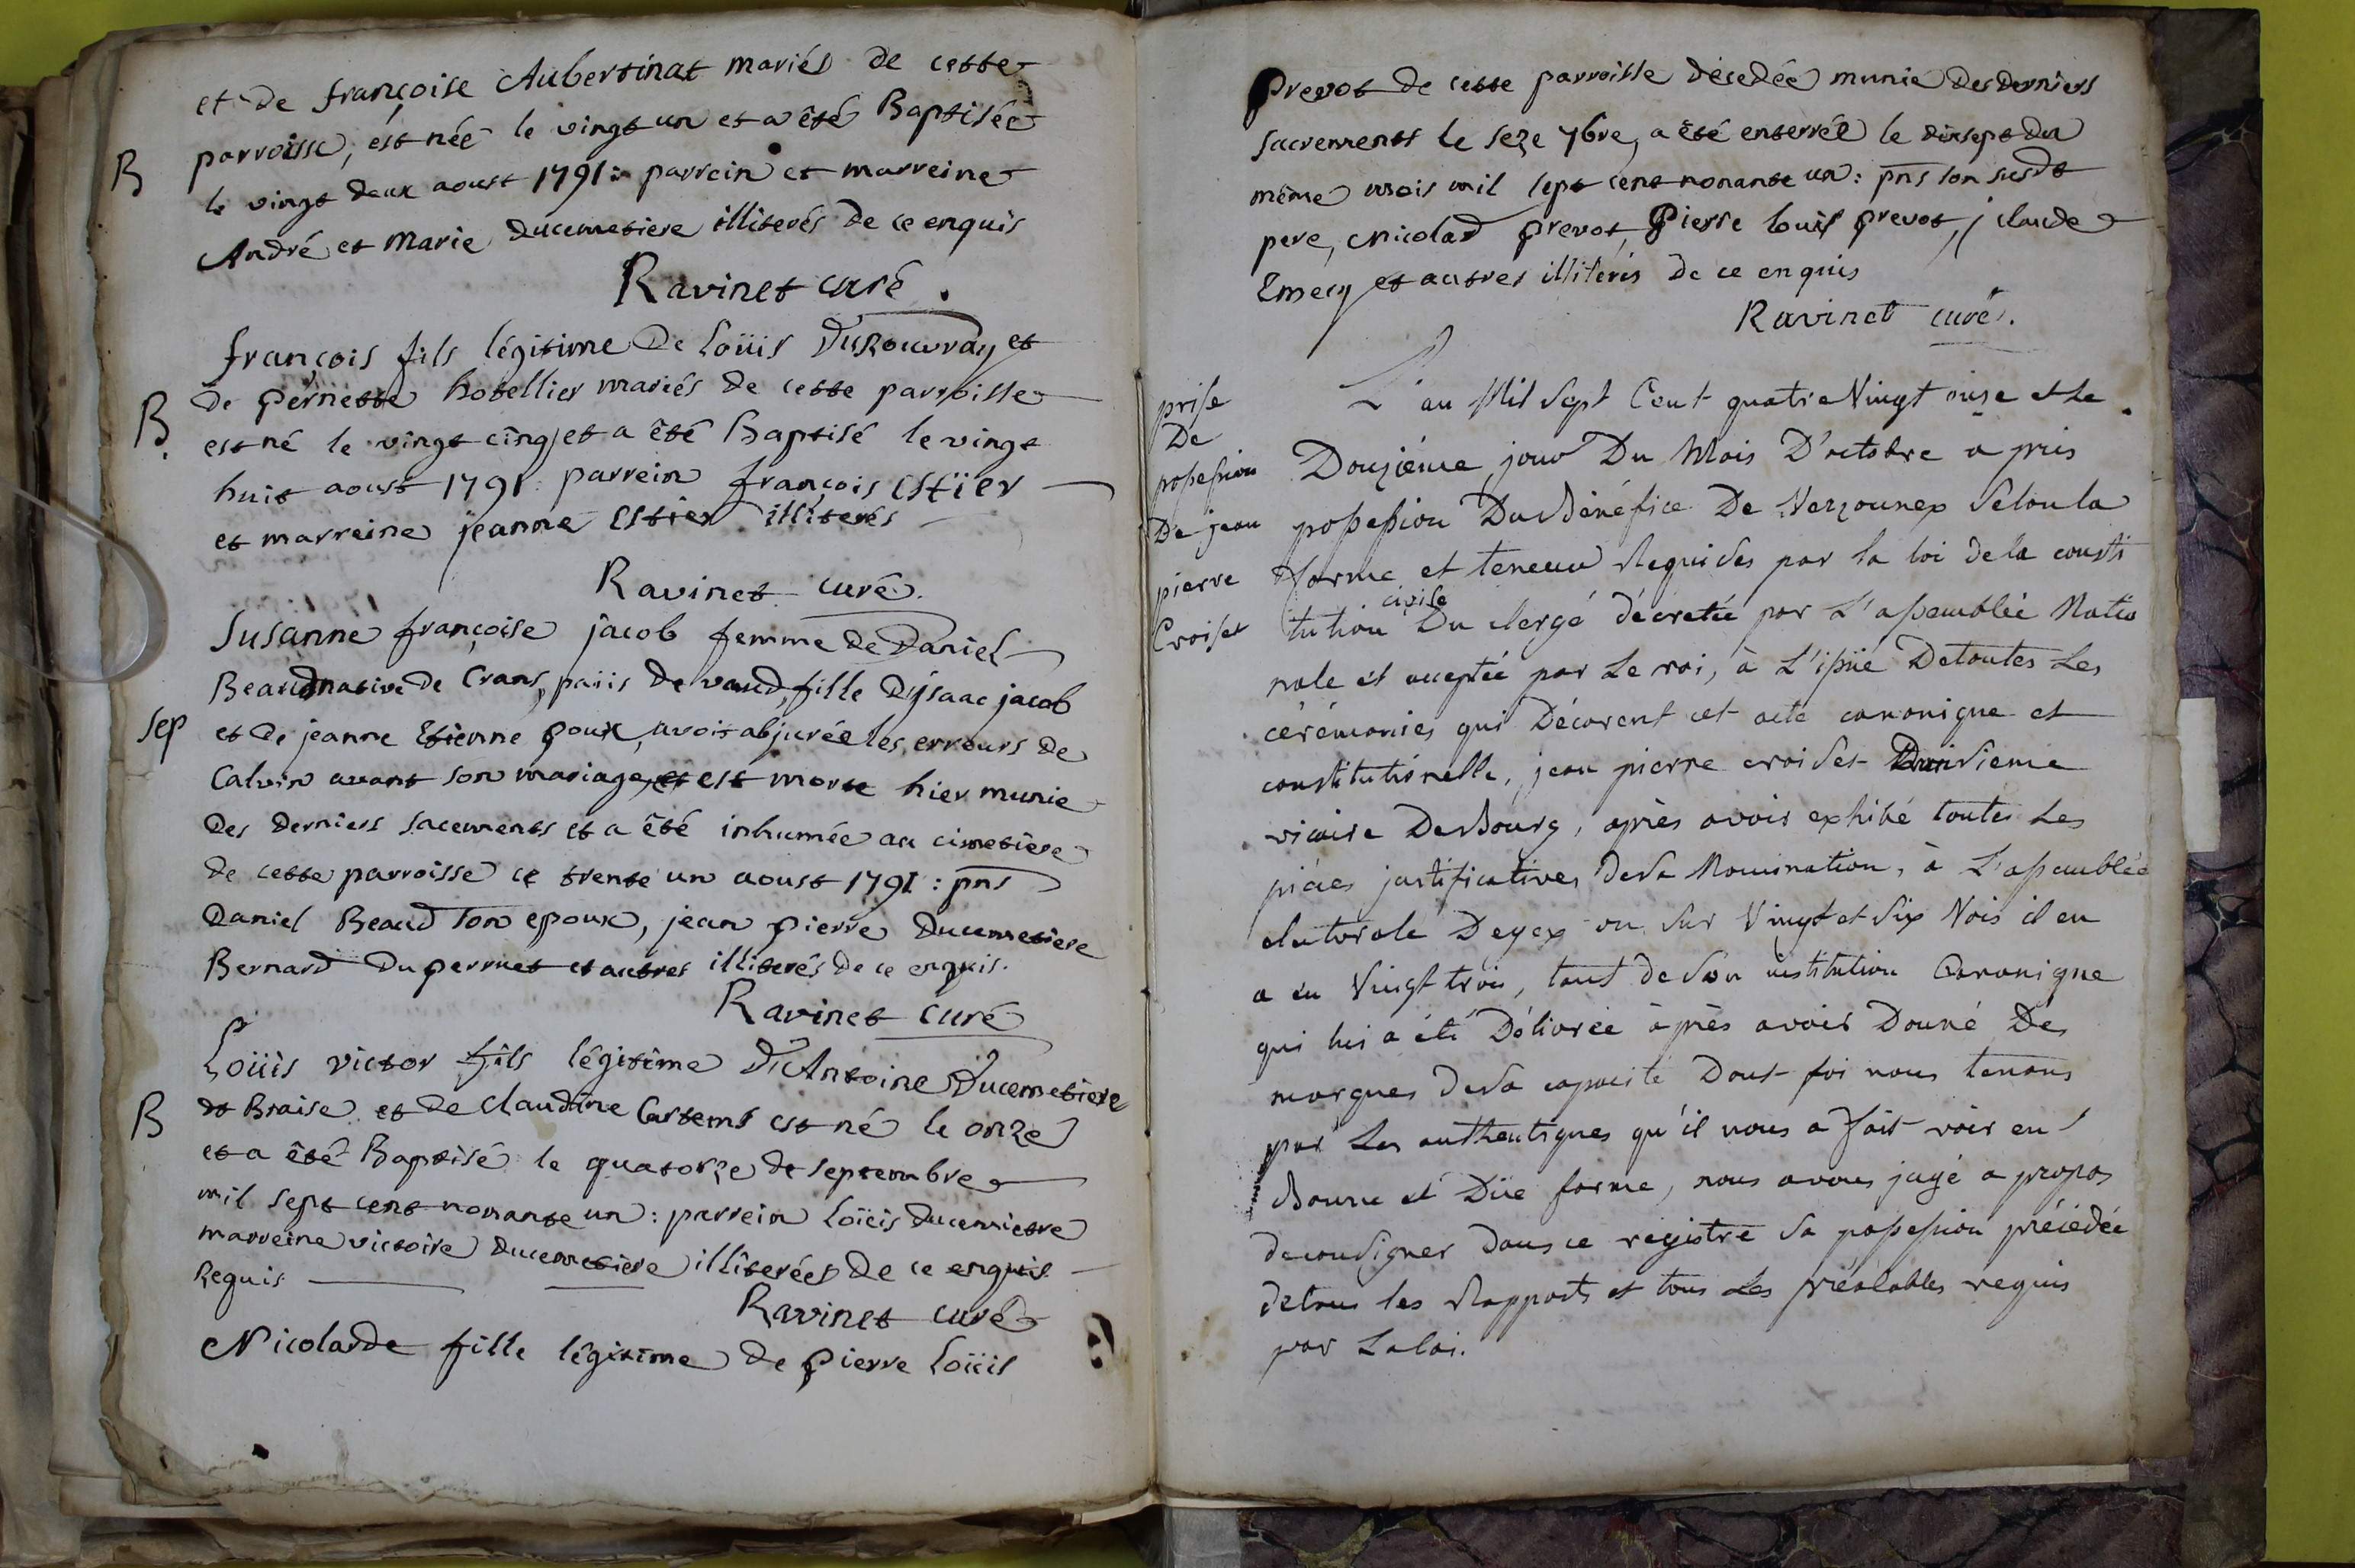 et de françoise Aubertinat mariés de cette
parroisse, est née le vingt un et a êté Baptisée
B
le vingt deux aoust 1791: parrein et marreine
André et Marie ducemetiere illiterés de ce enquis
Ravinet curé.
françois fils légitime de Loüis DuRouvray et
de pernette hotellier mariés de cette parroisse
B.
est né le vingt cinq et a êté Baptisé le vingt
huit aoust 1791: parrein françois Estïer
et marreine jeanne Estier illiterés
Ravinet curé.
Susanne françoise jacob femme de Daniel
Beaud native de Crans, païis de vaud, fille d'isaac jacob
sep
et de jeanne Etienne poux, avoit abjurée les erreurs de
Calvin avant son mariage, et est morte hier munie
des derniers sacements et a êté inhumée au cimetiere
de cette parroisse ce trente un aoust 1791: pns
Daniel Beaud son epoux, jean pierre Ducemetiere
Bernard Duperruet et autres illiterés de ce enquis.
Ravinet curé
Loüis victor fils légitime D'Antoine Ducemetiere
dt Braise et de claudine Castems est né le onze
B
et a êté Baptisé le quatorze de septembre
mil sept cent nonante un: parrein Loüis ducemietre
marreine victoire ducemetiere illiterées de ce enquis
Requis
Ravinet curé
Nicolarde fille légitime de pierre Loüis
prevot de cette parroisse décedée munie des derniers
sacrements le seze 7bre, a êté enterrée le dixsept du
même mois mil sept cent nonante un: pns son susdt
pere, nicolas prevot, Pierre louis prevot, j claude
Emery et autres illiterés de ce enquis
Ravinet curé.
prise
De
possession
De jean
pierre
Croiset
L'an Mil Sept Cent quatre Vingt onze et Le
Douzième jour Du Mois D'octobre a pris
possession Du Bénéfice De Verzounex Selon la
forme et teneur Requises par la loi de la consti
tution civile Du clergé décretée par L'assemblée Natio
nale et acceptée par Le roi, à L'issüe De toutes Les
cérémonies qui Décorent cet acte canonique et
constitutionelle, jean pierre croiset sieme
vicaire De Bourg, après avoir exhibé toutes Les
pièces justificatives De Sa Nomination, à L'assemblée
electorale De gex ou Sur Vingt et Six Vois il en
a eu Vingt trois, tant de Son institution Canonique
qui lui a été Délivrée après avoir Donné Des
marques De Sa capacité Dont foi nous tenons
par Les authentiques qu'il nous a fait voir en
Bonne et Düe forme, nous avons jugé a propos
de consigner dans ce registre Sa possession précédée
de tous les Rapports et tous Les préalables requis
par La loi.